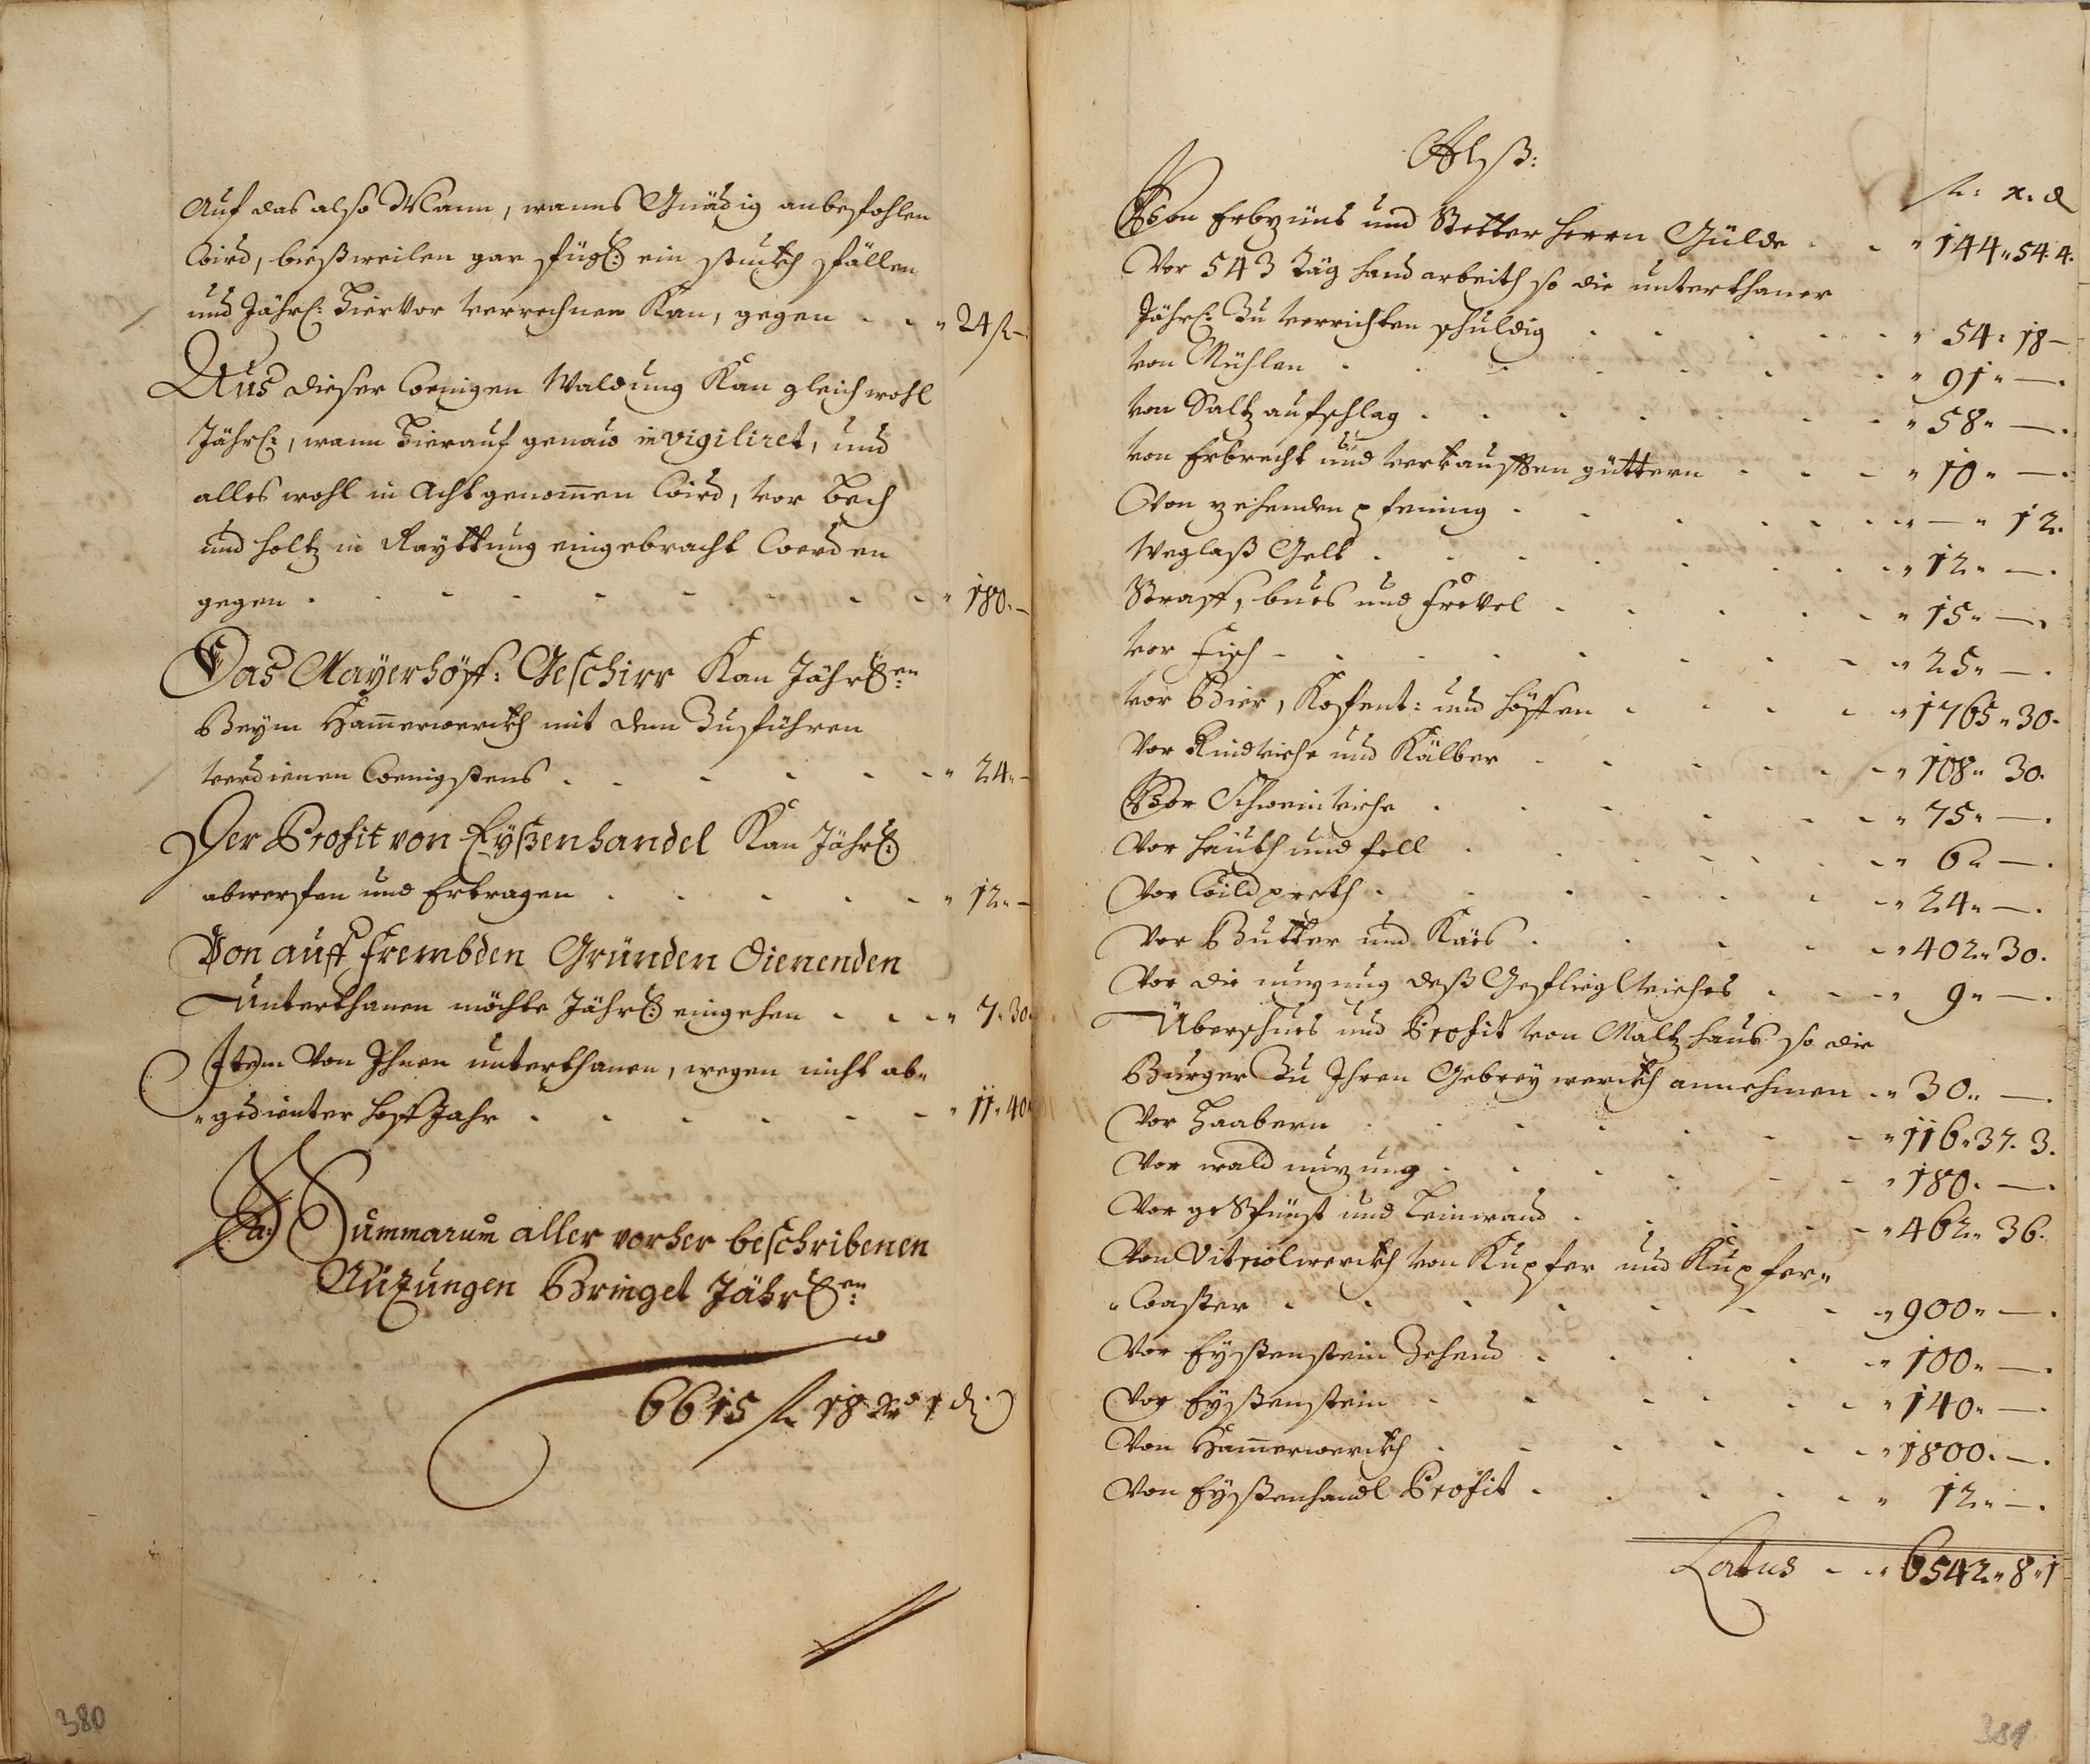 Auf das also Mann, wanns Gnädig anbefohlen
wird, bießweilen gar fügl: ein stuckh fällen
und Jährl: hiervor verrechnen Kan, gegen . . " 24 fl —
Aus dieser wenigen Waldung Kan gleichwohl
Jährl:, wann hierauf genaw invigiliret, und
alles wohl in Acht genom̄en wird, vor Bech
und holtz in Rayttung eingebracht werden
gegen . . . . . . . . " 180. —
Das Mayerhöff: Geschirr Kan Jährl:en
Beym Ham̄erwerckh mit dem Zusführen
verdienen wenigstens . . . . . " 24. —
Der Profit von Eyßenhandel Kan Jährl:
abwerfen und Ertragen . . . . . " 12. —
Von auff frembden Gründen dienenden
Unterthanen möchte Jährl: eingehen . . . " 7. 30.
Item Von Ihnen unterthanen, wegen nicht ab„
„gedienter hoff Jahr . . . . . . " 11. 40.
Summarum aller vorher beschribenen
Nuzungen Bringet Jährl:en
6615 fl 18 xr 1 d:
380
Alß:
fl: x: d
Von Erbzünß und Vetter herrn Gülde . . " 144 " 54. 4.
Vor 543 Täg hand arbeith so die unterthaner
Jährl: Zu verrichten schuldig . . . . . " 54 : 18 —
von Mühlen . . . . . . . " 91 " —.
von Saltz aufschlag . . . . . . " 58 " —.
von Erbrecht und verkaufften güttern . . . " 10 " —.
Von zehenden pfening . . . . . . " — " 12.
Weglaß Gelt . . . . . . . " 12 " —.
Straff, bues und Frevel . . . . . " 15 " —.
vor Fisch . . . . . . . . " 25 " —.
vor Bier, Kofent: und höffen . . . . " 1765 " 30.
Vor Rindviehe und Kälber . . . . . " 108 " 30.
Vor Schweinviehe . . . . . . " 75 " —.
Vor häuth und fell . . . . . . " 6 " —.
Vor wildpreth . . . . . . . " 24 " —.
Vor Butter und Käes . . . . . " 402 " 30.
Vor die nuzung deß Gefliglviehes . . . " 9 " —.
Überschues und Profit von Maltzhaus so die
Burger Zu Ihren Gebrey werckh annehmen . " 30 " —.
Vor Haabern . . . . . . . " 116 " 37. 3.
Vor wald nuzung . . . . . . " 180. —.
Vor gespunst und Leinwand . . . . . " 462 " 36.
Von Vitriolwerckh von Kupfer und Kupfer„
„waßer . . . . . . . . " 900 " —.
Vor Eyßenstein Zehend . . . . . " 100 " —.
Vor Eyßenstein . . . . . . " 140 " —.
Von Ham̄erwerckh . . . . . . " 1800. —.
Von Eyßenhandl Profit . . . . . " 12 " —.
Latus . . " 6542 " 8 " 1
381